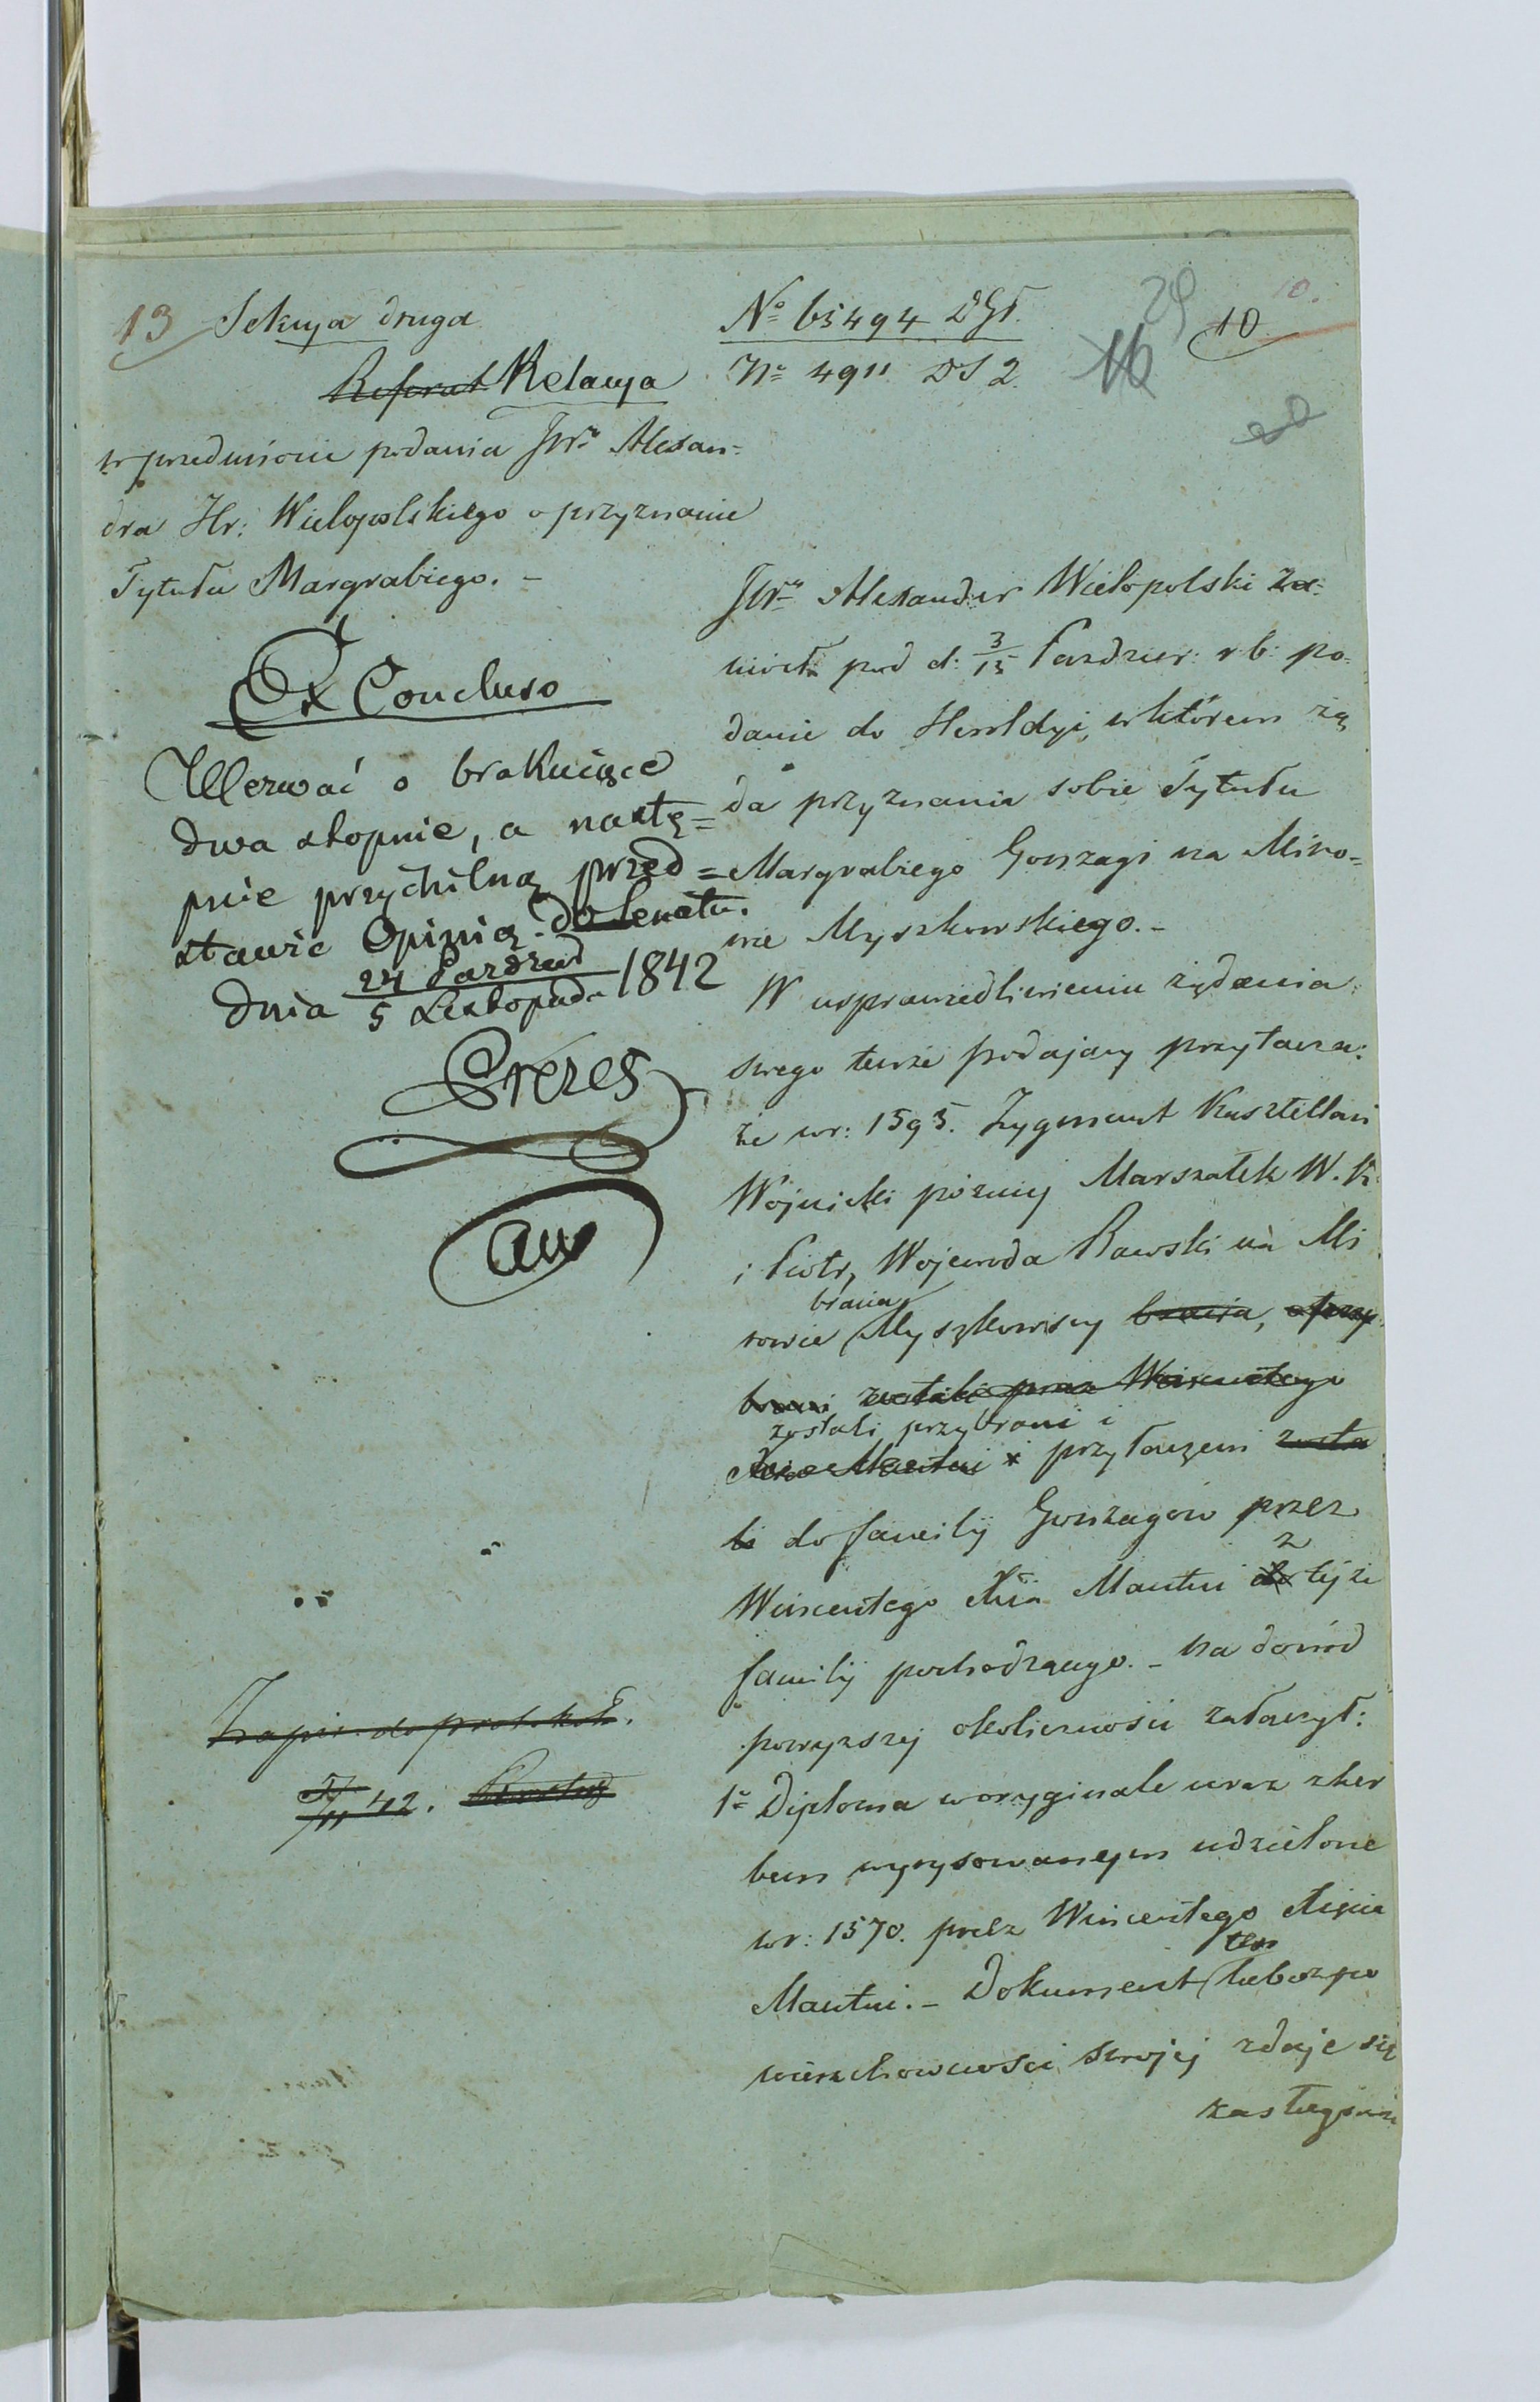 13 Sekcya druga
Referat Relacya
w przedmiocie podania JWo Alexan-
dra Hr: Wielopolskiego o przyznanie
Tytułu Margrabiego. -
Ex Concluso
Wezwać o brakuiące
dwa stopnie, a nastę=
pnie przychilną przed=
stawić Opinią do Senatu.
Dnia 24 Pazdzier / 5 Listopada 1842
Prezes
AW
Zapis. do protokół.
5/11 42.
No 65494 DGł.
No 4911 DS 2.
29
16
10
10.
JWny Alexander Wielopolski za-
niósł pod d: 3/15 Pazdzier: r b: po-
danie do Heroldyi, w którem żą
da przyznania sobie Tytułu
Margrabiego Gonzagi na Miro-
wie Myszkowskiego. -
W usprawiedliwieniu żądania
swego tenże podający przytacza:
że w r: 1595. Zygmunt Kasztellan
Wojnicki pózniej Marszałek W. K.
i Piotr, Wojewoda Rawski na Mi
bracia
rowie Myszkowscy bracia, a przy
brani zostali przez Wincentego
zostali przybrani i
Xcia Mantui i przyłączeni zosta
li do familij Gonzagów przez
z
Wincentego Xcia Mantui do tejże
familij pochodzącego. - Na dowód
powyższej okoliczności załączył:
1o Diploma w oryginale wraz z her
bem wyrysowanym udzielone
w r: 1570. przez Wincentego Xięcia
ten
Mantui. - Dokument lubo z po
wierzchowności swojej zdaje się
zasługiwać